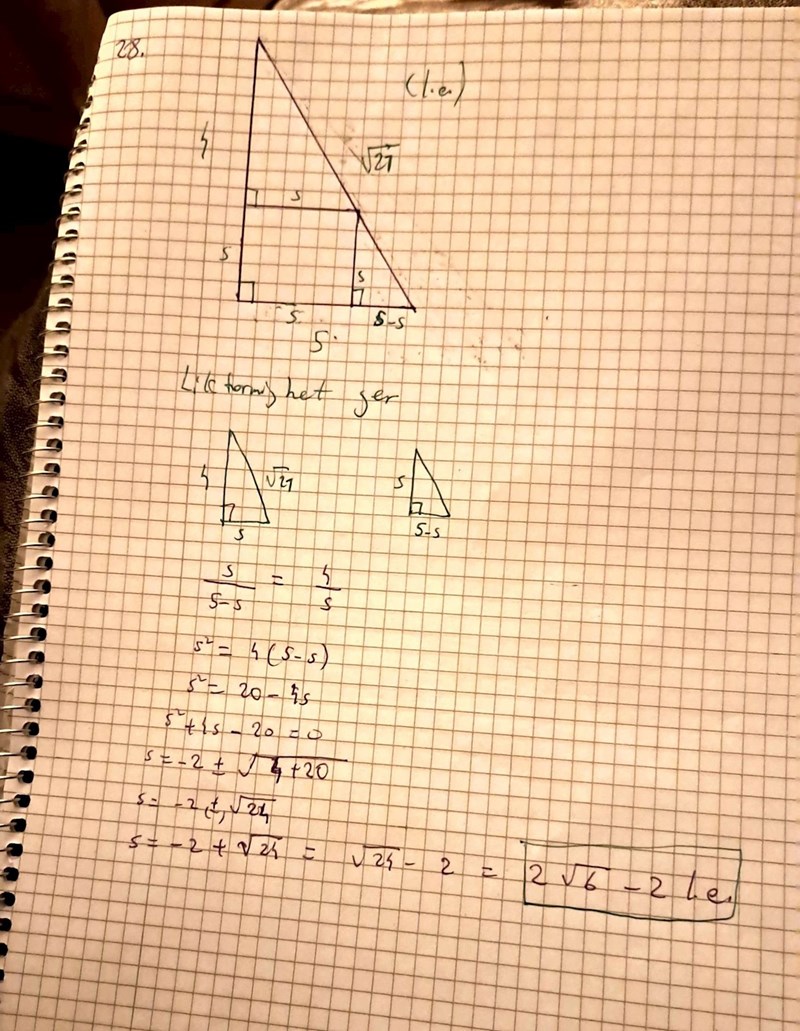 28.
(l.e.)
4
√27
s
s
s
s
5-s
5
Likformighet ger
4
√27
s
s
5-s
s/(5-s) = 4/s
s² = 4(5-s)
s² = 20 - 4s
s² + 4s - 20 = 0
s = -2 ± √(4+20)
s = -2 (±) √24
s = -2 + √24 = √24 - 2 = 2√6 - 2 l.e.